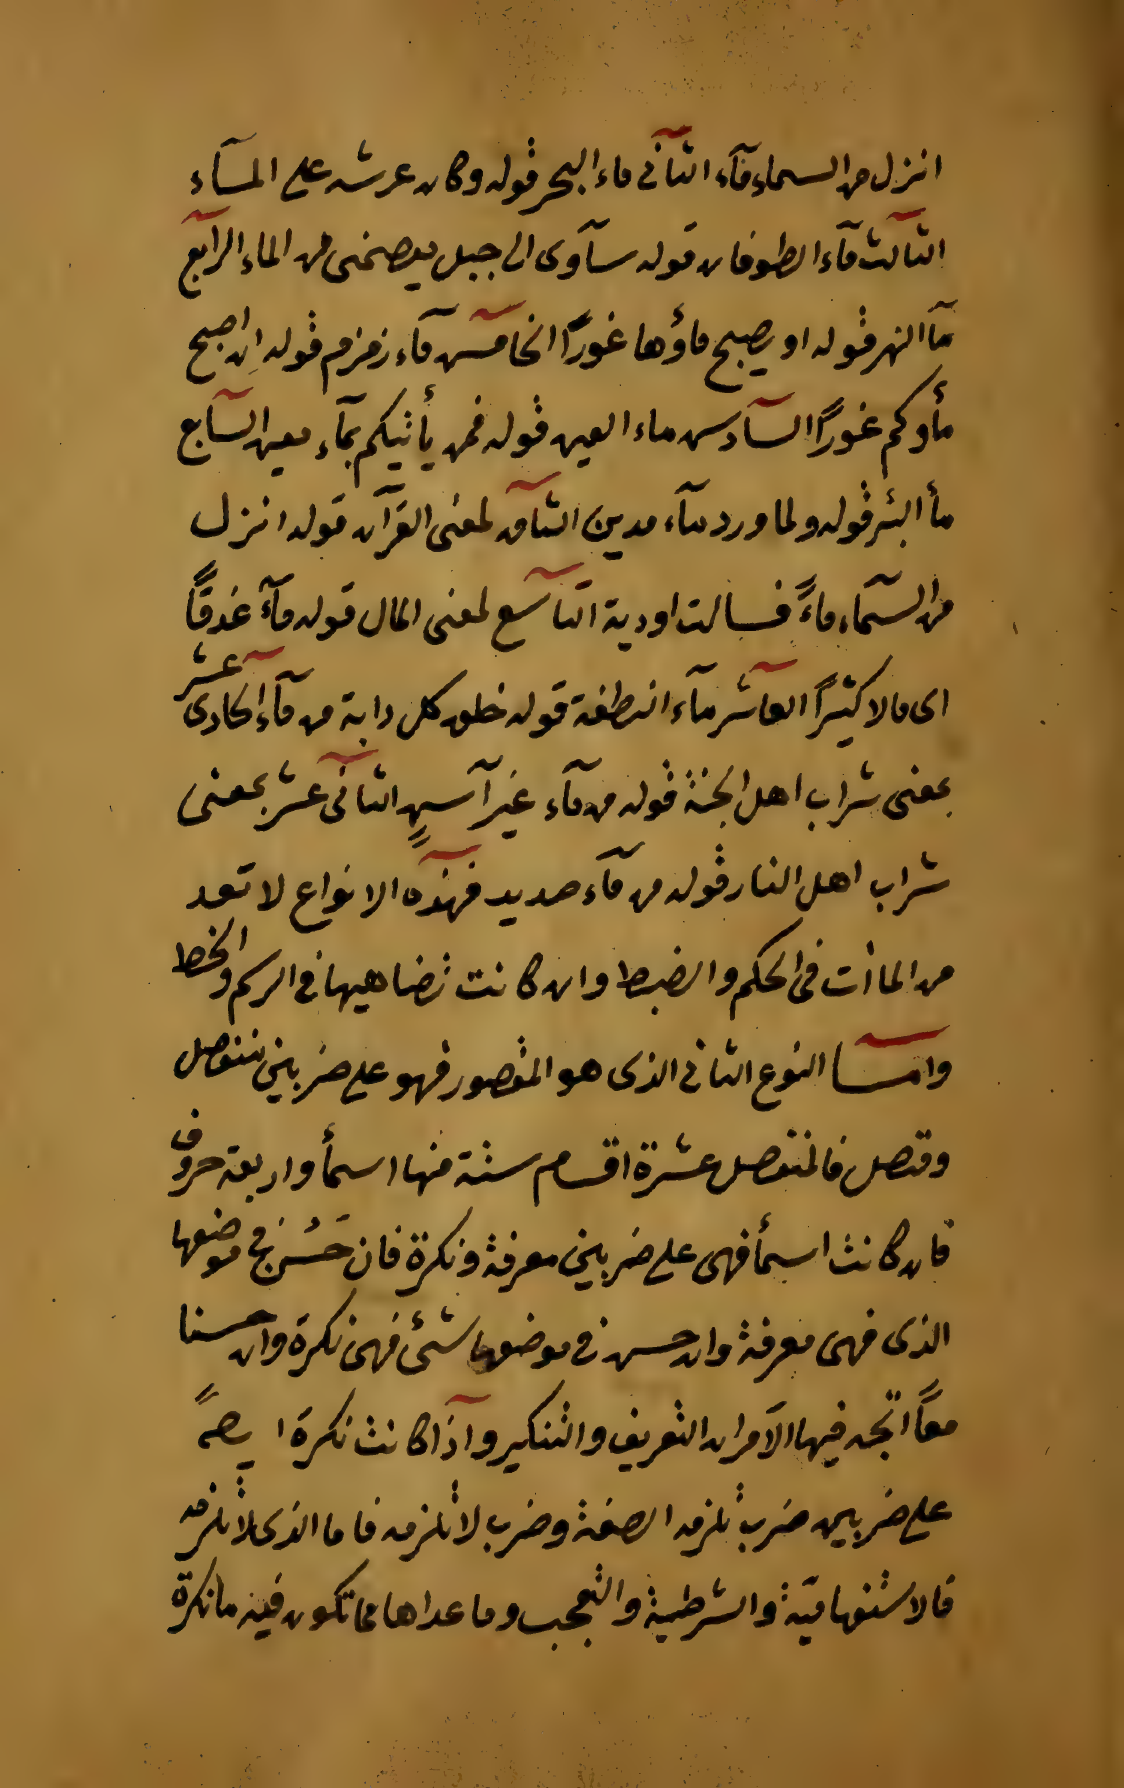 انزل من السماء مآء الثآنى ماء البحر قوله وكان عرشه على المسآء
الثآلث مآء الطوفان قوله سآوى الى جبل يعصمنى من الماء الرآبع
مآ النهر قوله او يصبح ماؤها غورًا الخآمس مآء زمزم قوله ان اصبح
مأوكم غورًا السآدس ماء العين قوله فمن يأتيكم بمآء معين السآبع
مأ البئر قوله ولما ورد مآء مدين الثآمن لمعنى القرآن قوله انزل
من السمآء ماءً فسالت اودية التآسع لمعنى المال قوله مآءً غدقًا
اى مالا كثيرًا العآشر مآء النطفة قوله خلق كل دابة من مآء الحادى عشر
بمعنى شراب اهل الجنة قوله من مآء غير آسنٍ الثآنى عشر بمعنى
شراب اهل النار قوله من مآء صديد فهذه الانواع لا تعد
من المائت فى الحكم والضبط وان كانت تضاهيها فى الرسم والخط
وامـــآ النوع الثانى الذى هو المقصور فهو على ضربين منفصل
ومتصل فالمنفصل عشرة اقسام ستة منها اسمأ واربعة حروف
فان كانت اسمأ فهى على ضربين معرفة ونكرة فان حَسُن فى موضعها
الذى فهى معرفة وان حسن فى موضعها شئ فهى نكرة وان حسنا
معًا اتجه فيها الآمران التعريف والتنكير وآذا كانت نكرة ايضًا
على ضربين ضرب تلزمه الصفة وضرب لا تلزمه فاما الذى لا تلزمه
فالاستفهاميّة والشرطية والتعجب وما عداها مما تكون فيه ما نكرة